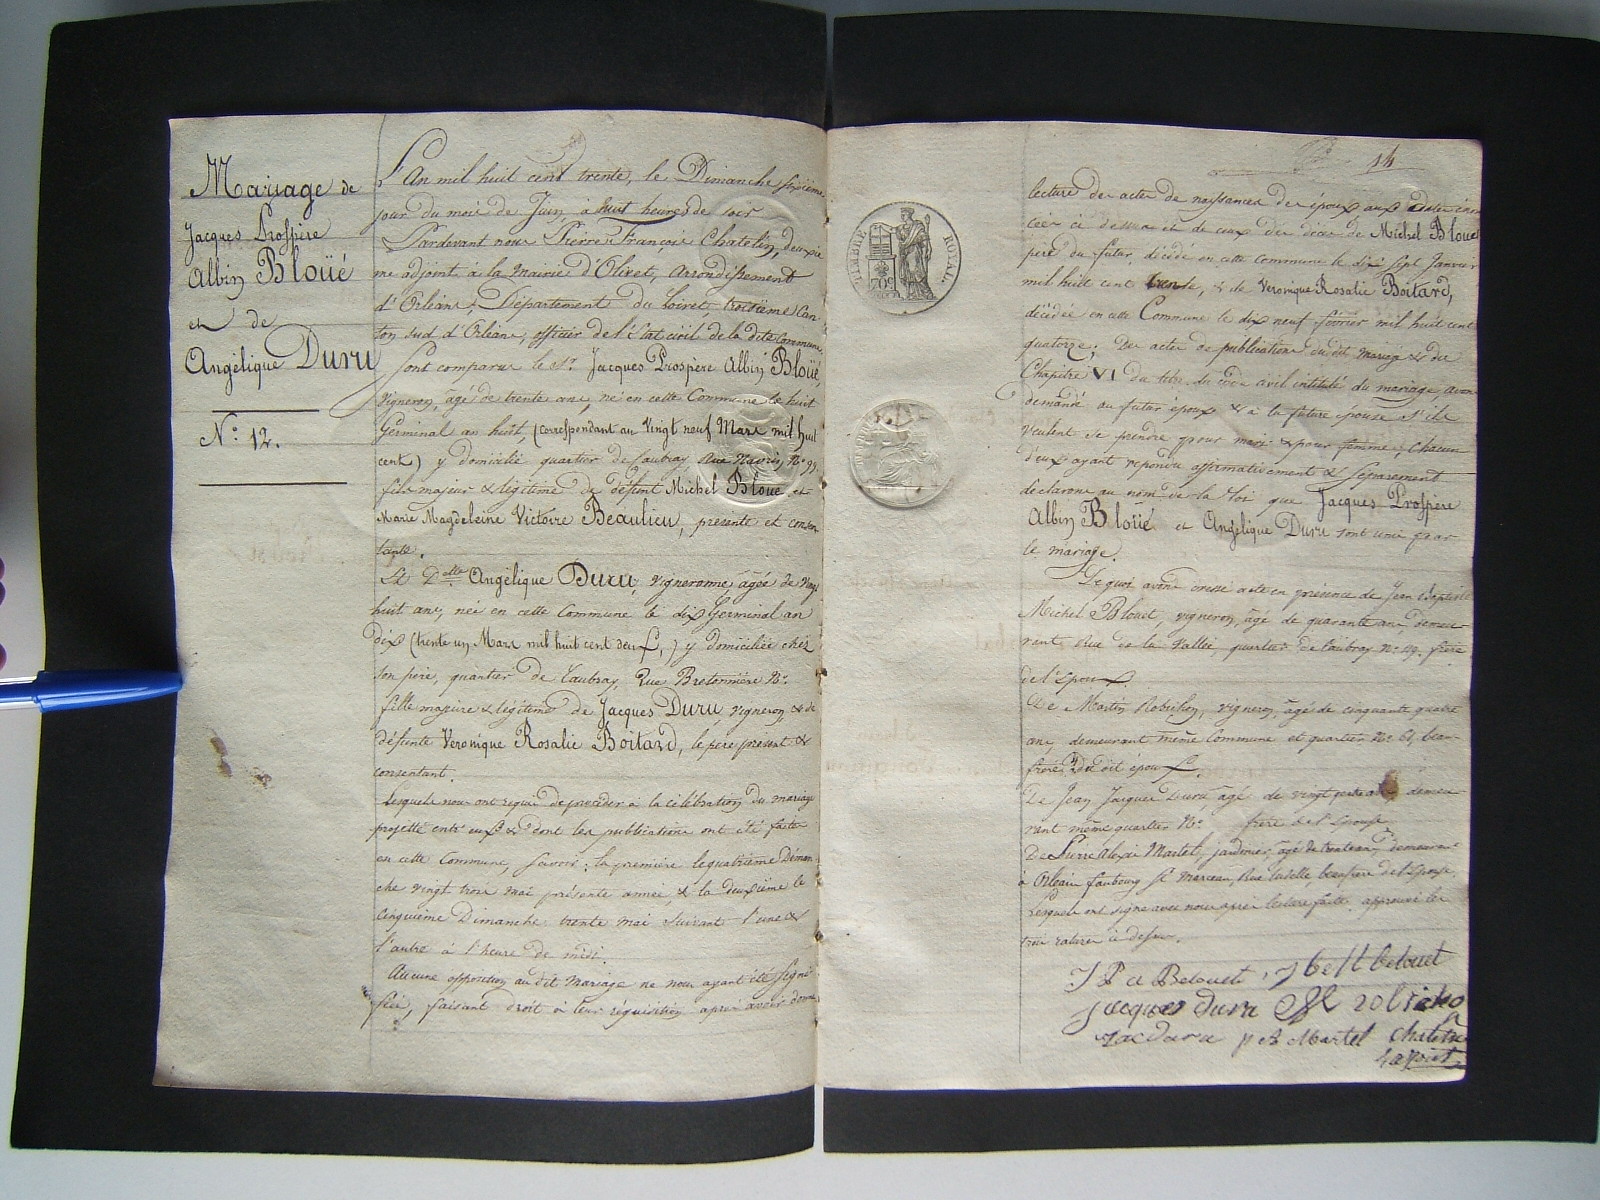 Mariage de
Jacques Prospère
Albin Bloüé
et de
Angélique Duru
N.° 12.
L'An mil huit cent trente, le Dimanche sixième
jour du mois de Juin, à huit heures de soir
Pardevant nous Pierre François Chatelin, deuxiè
me adjoint à la Mairie d'Olivet, arrondissement
d'Orléans, Département du Loiret, troisième Can
ton sud d'Orléans, officier de l'état civil de la dite Commune,
Sont comparus le S.r Jacques Prospère Albin Bloüé,
vigneron, âgé de trente ans, né en cette Commune le huit
Germinal an huit, (correspondant au Vingt neuf Mars mil huit
cent) y domicilié quartier de Caubray, Rue N.° 99
fils majeur & légitime de défunt Michel Bloüé et
Marie Magdeleine Victoire Beaulieu, présente et consen
tante.
Et D.elle Angélique Duru, vigneronne âgée de vingt
huit ans, née en cette Commune le dix Germinal an
dix (trente un Mars mil huit cent deux,) y domiciliée chez
son père, quartier de Caubray, Rue Bretonnière N.°
fille majeure & légitime de Jacques Duru, vigneron, & de
défunte Veronique Rosalie Boitard, le père présent &
consentant.
Lesquels nous ont requis de procéder à la célébration du mariage
projetté entr'eux & dont les publications ont été faites
en cette Commune, savoir: la première le quatrième Diman
che vingt trois mai présente année, & la deuxième le
cinquième Dimanche trente mai suivant l'une &
l'autre à l'heure de midi.
Aucune opposition au dit Mariage ne nous ayant été signi
fiée, faisant droit à leur réquisition, après avoir donné
TIMBRE ROYAL
70.c
14
lecture des actes de naissances des époux aux dates énon
cées ci dessus et de ceux des décès de Michel Bloué
père du futur, décédé en cette commune le dix sept Janvier
mil huit cent trente, & de Veronique Rosalie Boitard,
décédée en cette Commune le dix neuf février mil huit cent
quatorze; Des actes de publications du dit mariage & du
Chapitre VI du titre du code civil intitulé du mariage, avons
demandé au futur époux & à la future épouse s'ils
veulent se prendre pour mari & pour femme, chacun
d'eux ayant répondu affirmativement & séparément
déclarons au nom de la loi que Jacques Prospère
Albin Bloüé et Angélique Duru sont unis par
le mariage.
De quoi avons dressé acte en présence de Jean Baptiste
Michel Blouet, vigneron, âgé de quarante ans demeu-
rant Rue de la Vallée, quartier de Caubray N.° 49, frère
de l'époux.
De Martin Robichon, vigneron, âgé de cinquante quatre
ans, demeurant même Commune et quartier N.° 61, beau-
frère du dit époux.
De Jean Jacques Duru âgé de vingt ans demeu-
rant même quartier N.° frère de l'épouse
De Pierre Alexis Martel, jardinier, âgé de trente ans demeurant
à Orléans faubourg S.t Marceau, Rue , beaufrère de l'épouse,
Lesquels ont signé avec nous après lecture faite. approuvé les
trois ratures ci dessus.
J P A Belouet, belouet
jacques duru M robicho
jac Duru p A Martel Chatelin
adjoint